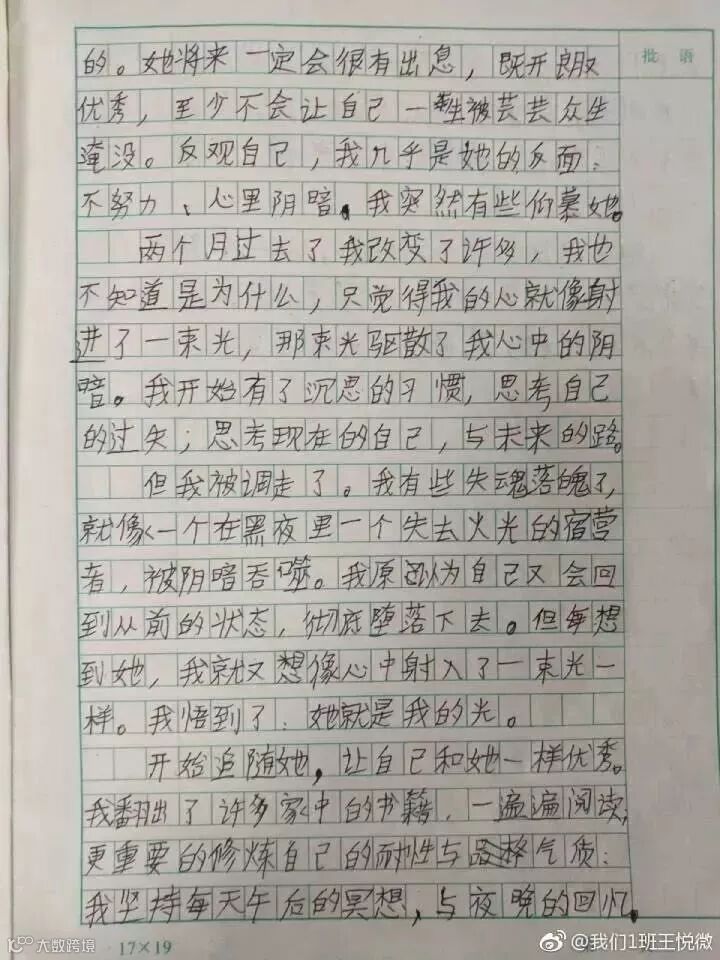 批语
的。她将来一定会很有出息，既开朗又
优秀，至少不会让自己一生被芸芸众生
淹没。反观自己，我几乎是她的反面：
不努力、心里阴暗。我突然有些仰慕她。
两个月过去了我改变了许多，我也
不知道是为什么，只觉得我的心就像射
进了一束光，那束光驱散了我心中的阴
暗。我开始有了沉思的习惯，思考自己
的过失；思考现在的自己，与未来的路。
但我被调走了。我有些失魂落魄了，
就像一个在黑夜里一个失去火光的宿营
者，被阴暗吞噬。我原以为自己又会回
到从前的状态，彻底堕落下去。但每想
到她，我就又想像心中射入了一束光一
样。我悟到了：她就是我的光。
开始追随她，让自己和她一样优秀。
我翻出了许多家中的书籍，一遍遍阅读，
更重要的修炼自己的耐性与品格气质：
我坚持每天午后的冥想，与夜晚的回忆。
17×19
大数跨境
@我们1班王悦微